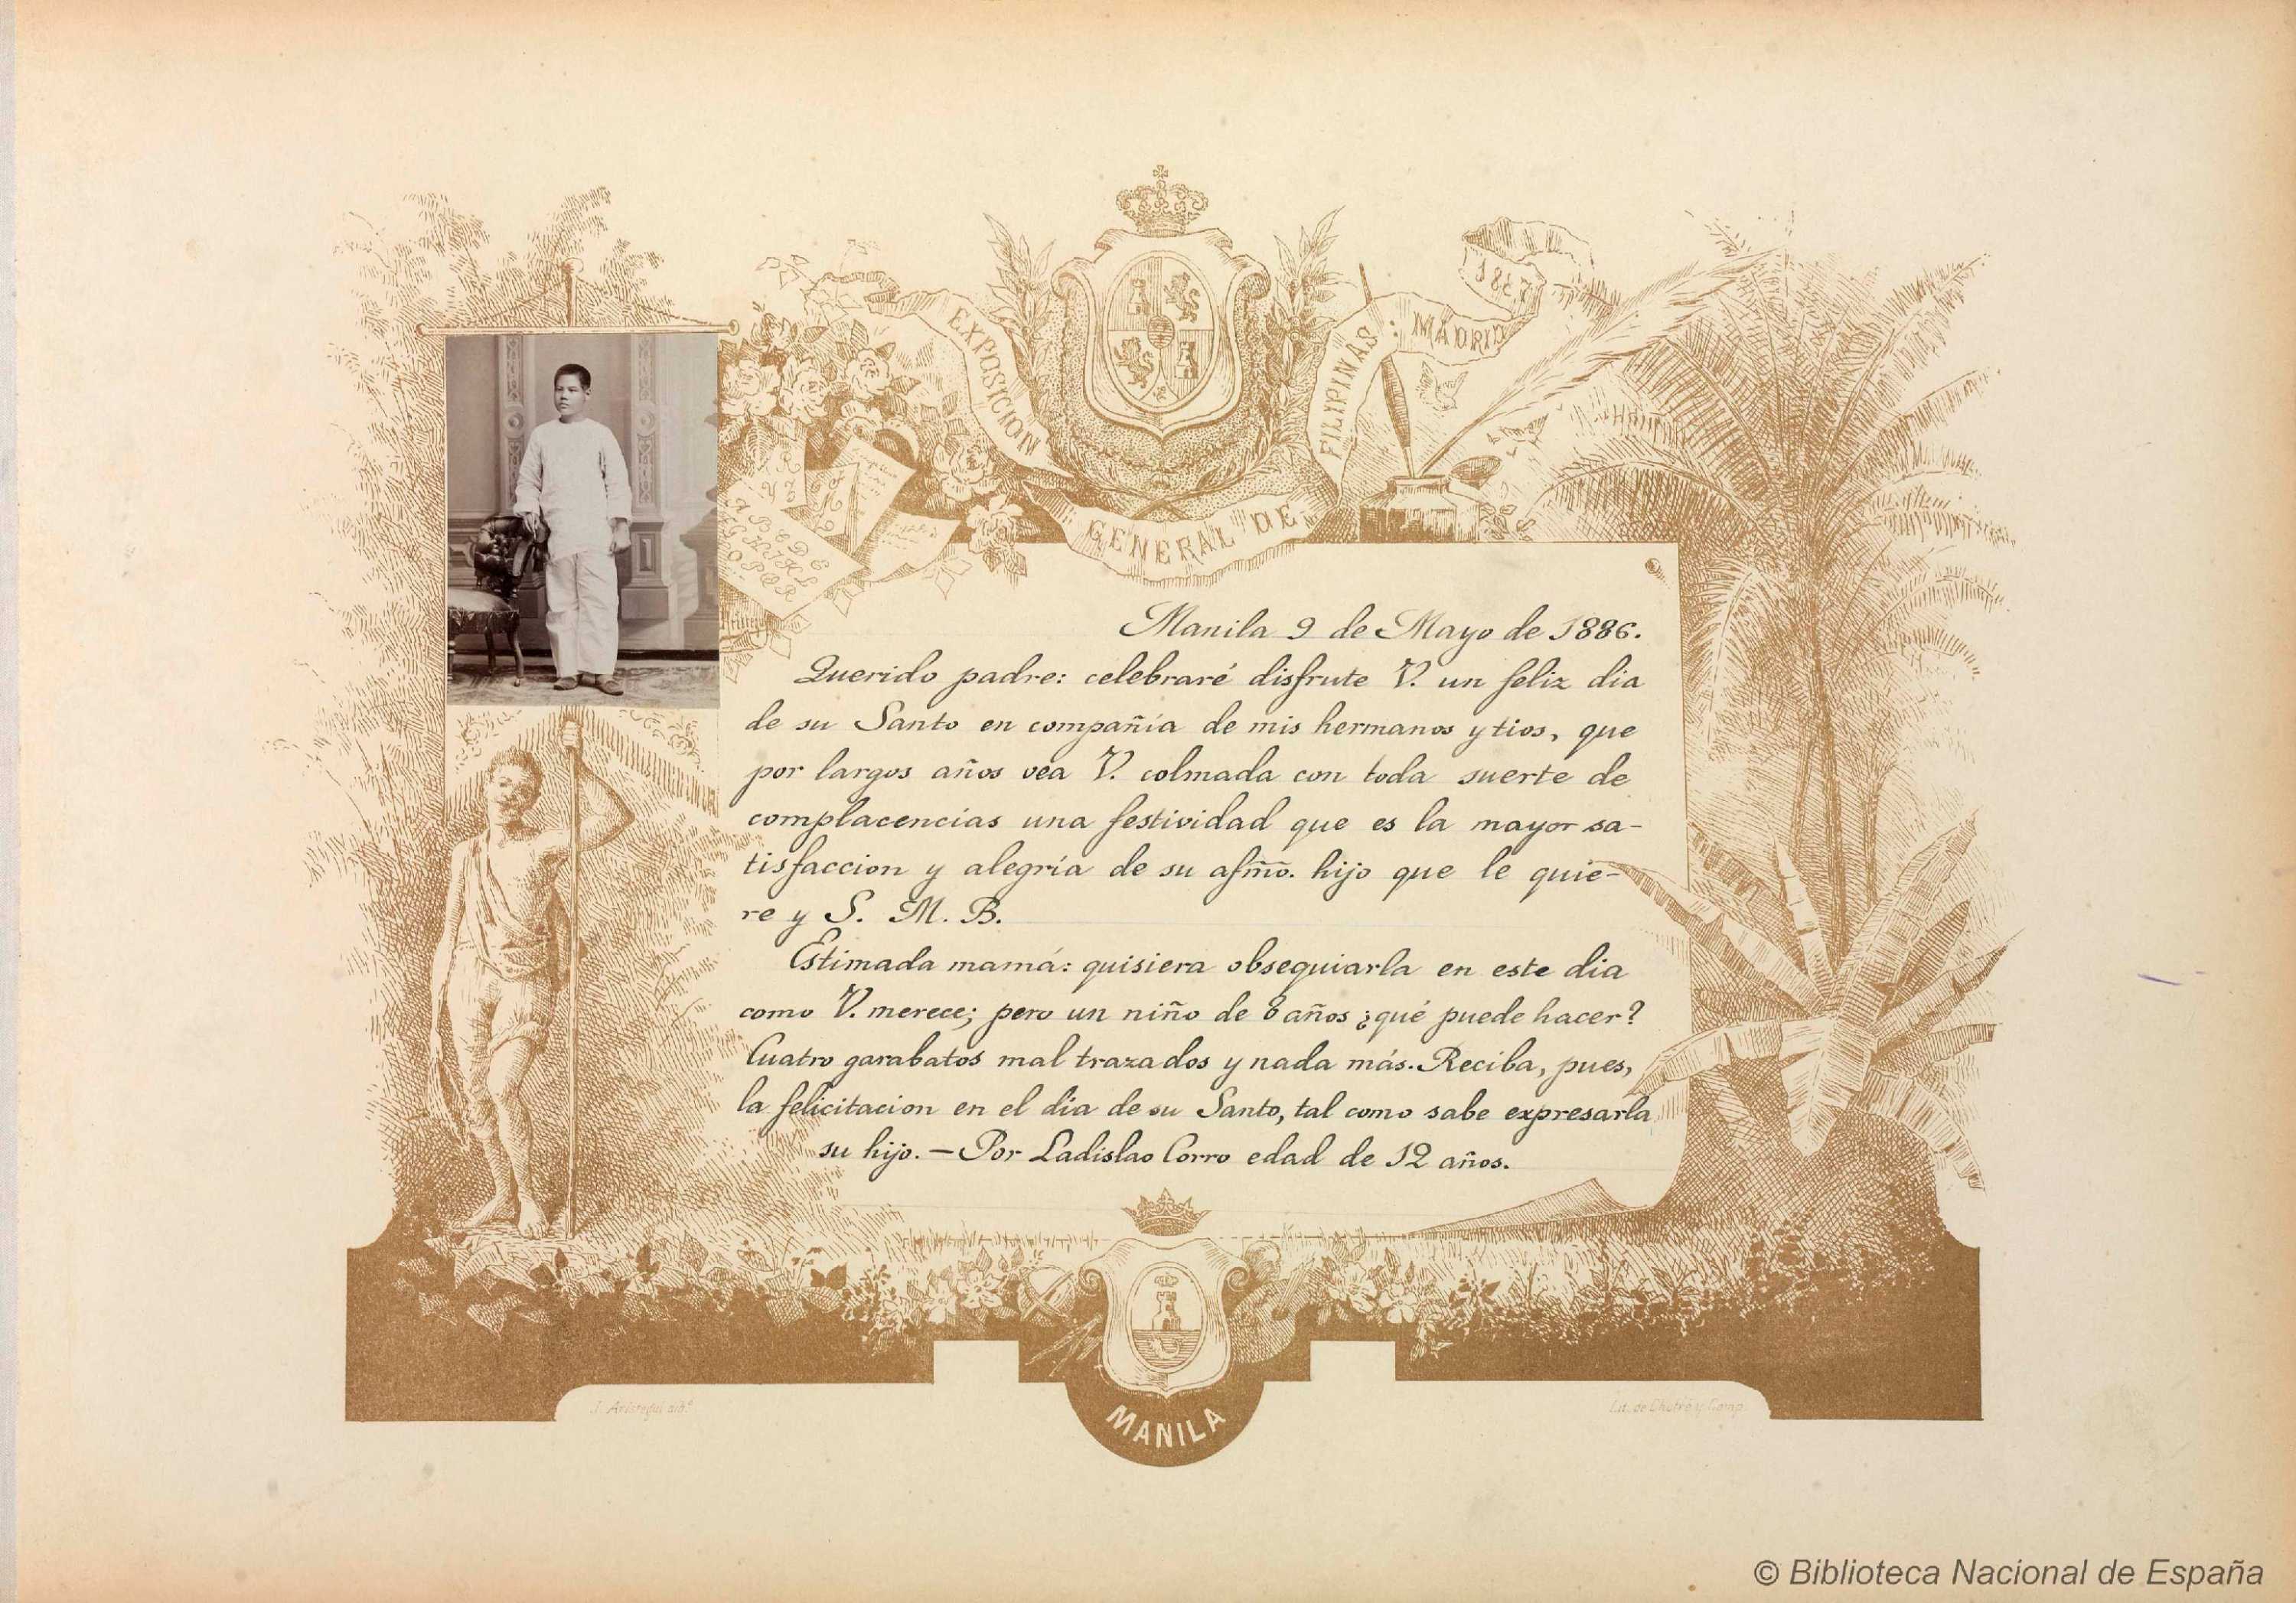 EXPOSICION GENERAL DE FILIPINAS: MADRID 1887
A B C D E
G H I J K L
O P Q R
Manila 9 de Mayo de 1886.
Querido padre: celebraré disfrute V. un feliz dia
de su Santo en compañía de mis hermanos y tios, que
por largos años vea V. colmada con toda suerte de
complacencias una festividad que es la mayor sa-
tisfaccion y alegría de su afmo. hijo que le quie-
re y S. M. B.
Estimada mamá: quisiera obsequiarla en este dia
como V. merece; pero un niño de 8 años ¿qué puede hacer?
Cuatro garabatos mal trazados y nada más. Reciba, pues,
la felicitacion en el dia de su Santo, tal como sabe expresarla
su hijo. — Por Ladislao Corro edad de 12 años.
MANILA
Lit. de Chofré y Comp.
© Biblioteca Nacional de España